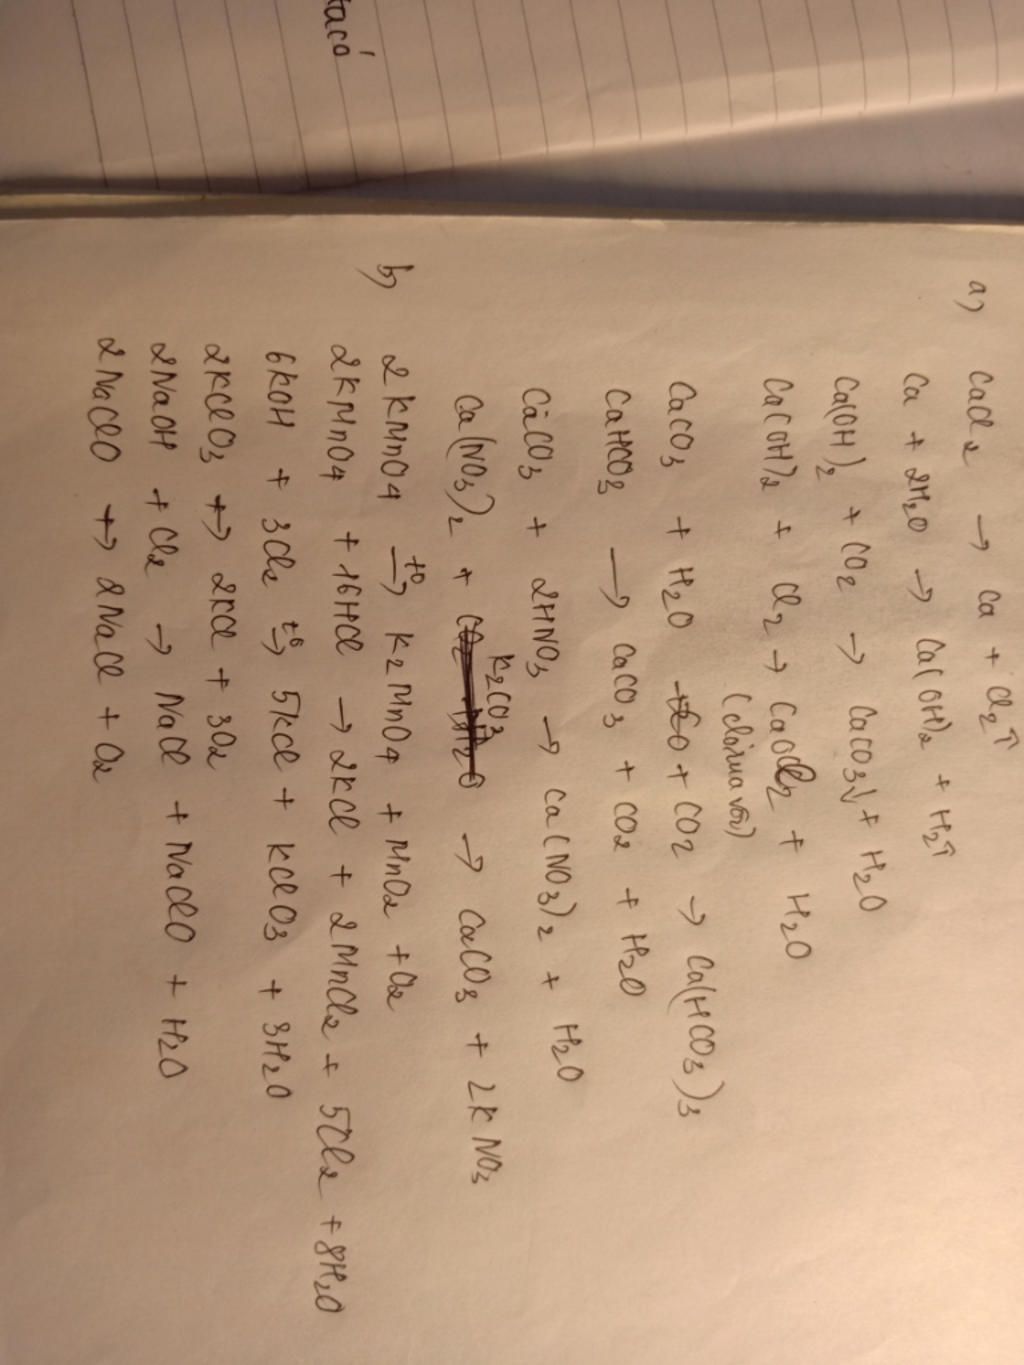 tacó
a) CaCl2 → Ca + Cl2↑
Ca + 2H2O → Ca(OH)2 + H2↑
Ca(OH)2 + CO2 → CaCO3↓ + H2O
Ca(OH)2 + Cl2 → CaOCl2 + H2O
(clorua vôi)
CaCO3 + H2O + CO2 → Ca(HCO3)3
CaHCO3 → CaCO3 + CO2 + H2O
CaCO3 + 2HNO3 → Ca(NO3)2 + H2O
K2CO3
Ca(NO3)2 + → CaCO3 + 2KNO3
b) 2KMnO4 →to K2MnO4 + MnO2 + O2
2KMnO4 + 16HCl → 2KCl + 2MnCl2 + 5Cl2 + 8H2O
6KOH + 3Cl2 →to 5KCl + KClO3 + 3H2O
2KClO3 → 2KCl + 3O2
2NaOH + Cl2 → NaCl + NaClO + H2O
2NaClO → 2NaCl + O2